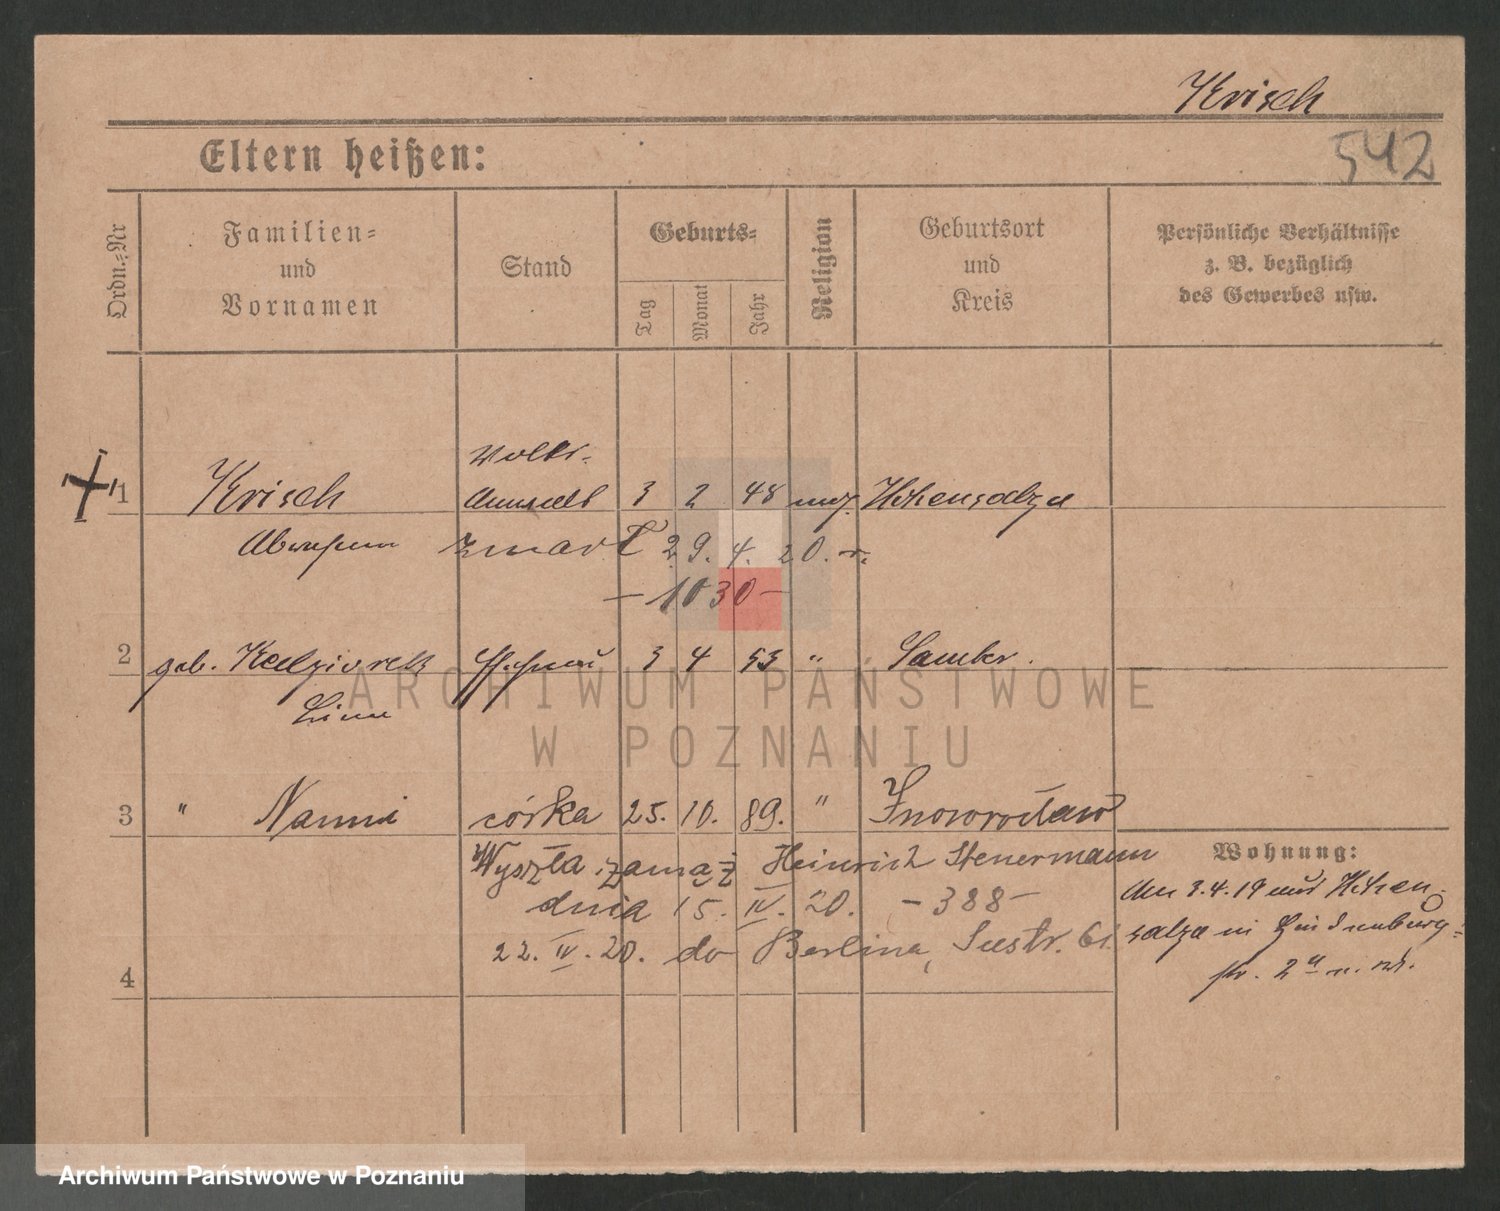 Krisch
542
Eltern heißen:
Ordn.-Nr
Familien-
und
Vornamen
Stand
Geburts-
Tag
Monat
Jahr
Religion
Geburtsort
und
Kreis
Persönliche Verhältnisse
z. B. bezüglich
des Gewerbes usw.
1
Krisch
3 2 48 mos. Hohensalza
Abraham zmarł 29. 4. 20. r.
- 1030 -
2 geb. Ehefrau 3 4 53 " Samter.
3 " Nanni córka 25. 10. 89. " Inowrocław
Wyszła zamąż Heinrich Steuermann
dnia 15. IV. 20. - 388 -
22. IV. 20. do Berlina, 61.
4
Wohnung:
Am 3.4.19 aus Hohen-
salza in Hindenburg-
str. 2
ARCHIWUM PAŃSTWOWE
W POZNANIU
Archiwum Państwowe w Poznaniu